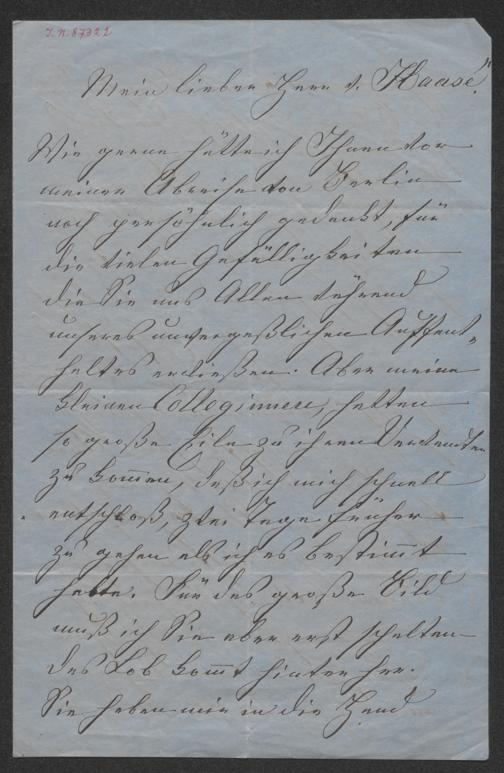 I.N. 87321
Mein lieber Herr v. Haase!
Wie gerne hätte ich Ihnen vor
meiner Abreise von Berlin
noch persöhnlich gedankt, für
die vielen Gefälligkeiten
die Sie uns Allen während
unseres unvergeßlichen Auffent-
haltes erwießen. Aber meine
kleinen Colleginnen, hatten
so große Eile zu ihren Verwandten
zu kommen, daß ich mich schnell
entschloß, zwei Tage früher
zu gehen als ich es bestimmt
hatte. Für das große Bild
muß ich Sie aber erst schelten
das Lob kommt hinter her.
Sie haben mir in die Hand